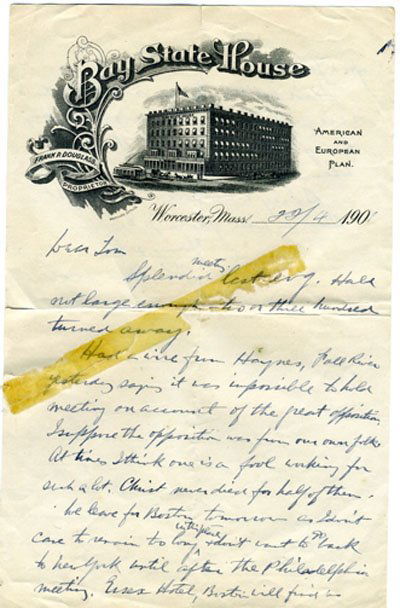 Bay State House
FRANK P. DOUGLASS,
PROPRIETOR
AMERICAN
AND
EUROPEAN
PLAN.
Worcester, Mass. 28/4 190
Dear Tom
meeting
Splendid last evg. Hall
not large enough two or three hundred
turned away.
Had a wire from Haynes, Fall River
yesterday saying it was impossible to hold
meeting on account of the great opposition
I suppose the opposition was from our own folks
At times I think one is a fool working for
such a lot. Christ never died for half of them.
We leave for Boston tomorrow as I don't
in this place
care to remain to long & don't want to go back
to New York until after the Philadelphia
meeting. Essex Hotel, Boston will find us